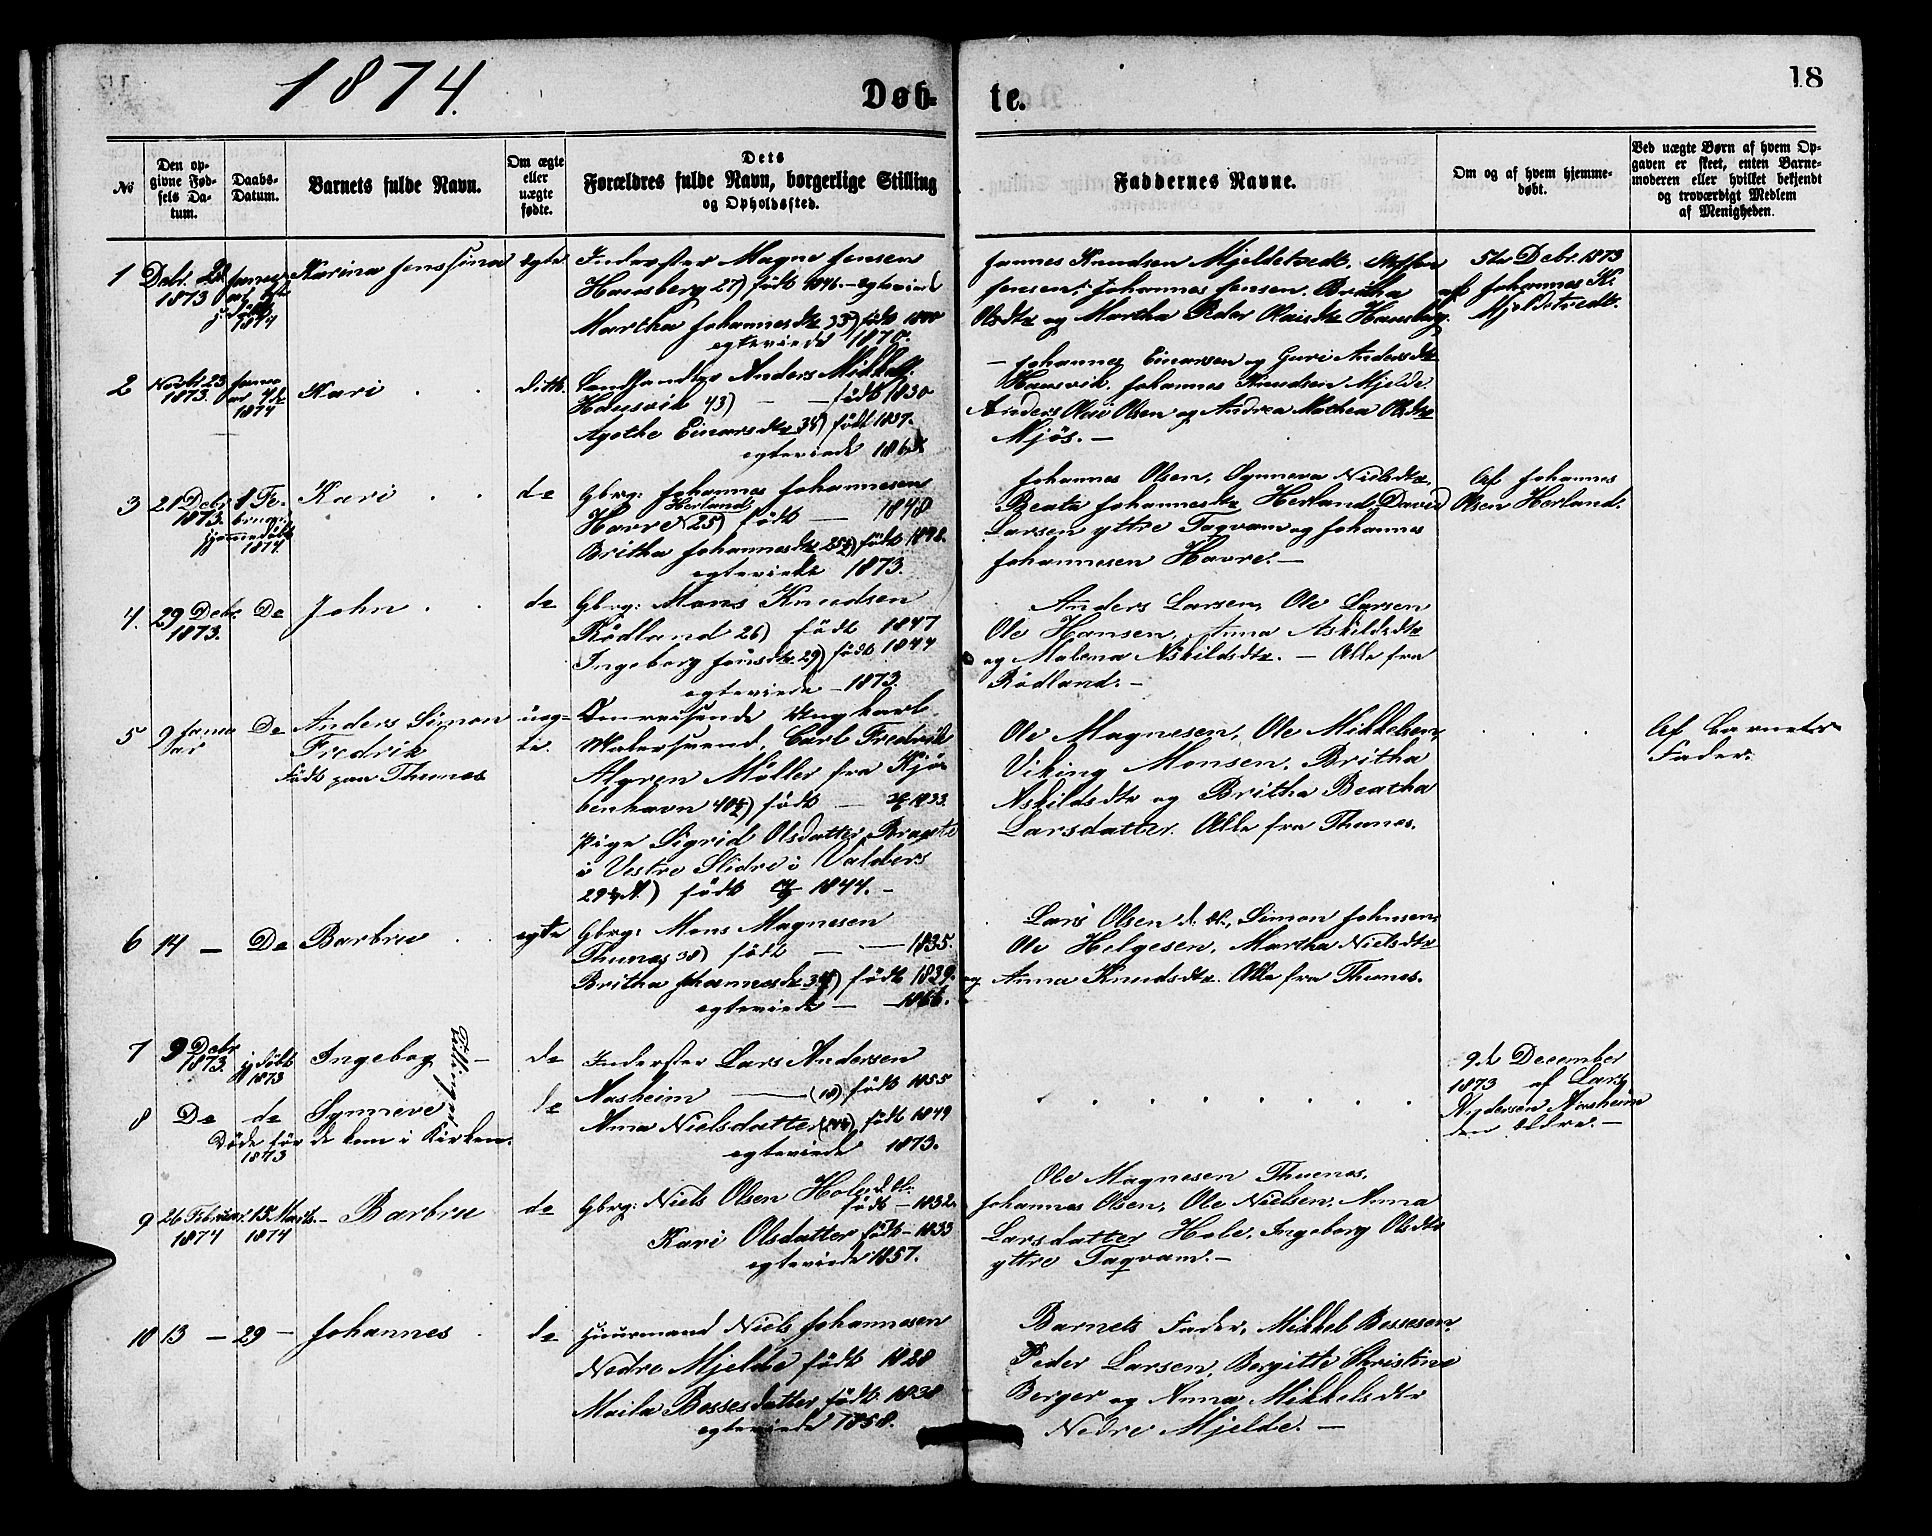 1874.
Døb-
te.
18
No
Den op-
givne Fød-
sels Da-
tum.
Daabs-
Datum.
Barnets fulde Navn.
Om ægte
eller
uægte
fødte.
Dets
Forældres fulde Navn, borgerlige Stilling
og Opholdssted.
Faddernes Navne.
Om og af hvem hjemme-
døbt.
Ved uægte Børn af hvem Op-
gaven er skeet, enten Barne-
moderen eller hvilket bekjendt
og troværdigt Medlem
af Menigheden.
1
Debr.
1873
1874
Karina Jenssina
egte
Inderster Magne Jensen
Hausberg 27) født 1846 - egteviede
Martha Johannesdtr 33) født
egteviede 1870.
Johannes Knudsen Mjeldetvedt. Steffen
Jensen, Johannes Jensen. Britha
Olsdtr og Martha Peder Olaisdtr Hausberg.
5te Debr. 1873
af Johannes K.
Mjeldetvedt.
2
Novbr 23
1873.
Janu
ar
1874
Kari
ditto
Landhandler Anders Mikkels.
Hausvik 43) — født 1830
Agathe Einarsdtr født 1837.
egteviede
— Johannes Einarsen og Guri Andersdtr
Hausvik. Johannes Knudsen Mjelde
Anders Olai Olsen og Andrea Mathea Olsdtr
Mjøs. —
3
21 Debr
1873.
1 Fe-
bruar
hjemmedøbt
1874.
Kari
de
Gbrg: Johannes Johannesen
Herland
Havre 25) født — 1848
Britha Johannesdtr født 1848.
egteviede 1873.
Johannes Olsen, Synneva Nielsdtr
Beate Johannesdtr Herland, David
Larsen yttre Taqvam og Johannes
Johannesen Havre. —
Af Johannes
Olsen Herland.
4.
29 Debr.
1873.
De
John
de
Gbrg: Mons Knudsen
Rödland 26) født 1847
Ingeborg Jonsdtr 29) født 1844
egteviede — 1873.
Anders Larsen, Ole Larsen
Ole Hansen, Anna Askildsdtr
og Malena Askildsdtr. — Alle fra
Rödland. —
5
9 Janu
ar
De
Anders Simon
Fredrik
Født paa Thunes
uæg-
te.
Omreisende Ungkarl
Malersvend, Carl Fredrik
Algren Møller fra Kjø-
benhavn født — 1833.
Pige Sigrid Olsdatter Bragste
i Vestre Slidre i Valders
født 1844. -
Ole Magnesen, Ole Mikkelsen,
Viking Monsen, Britha
Askildsdtr og Britha Beatha
Larsdatter. Alle fra Thunes.
Af Barnets
Fader.
6
14 —
De
Barbru
egte
Gbrg: Mons Magnesen
Thunes 38) født — 1835.
Britha Johannesdtr født 1839.
egteviede — 1866.
Lars Olsen d. æl., Simon Johnsen,
Ole Helgesen, Martha Nielsdtr
og Anna Knudsdtr. Alle fra Thunes.
7
9 Debr
1873.
hj døbt
1873
Ingebog
Tvillinger
de
Inderster Lars Andersen
Aasheim — (18) født 1855
Anna Nielsdatter født 1849
egteviede 1873.
9de December
1873 af Lars
Andersen Aasheim
den ældre. —
8
De
de
Synneve
de
Døde før de kom i Kirken.
1873
9
26 Februar
1874
15 Marts.
1874
Barbru
de
Gbrg: Niels Olsen Hole d. æl:
født — 1832.
Kari Olsdatter født — 1833
egteviede 1857.
Ole Magnesen Thunes.
Johannes Olsen, Ole Nielsen, Anna
Larsdatter Hole, Ingeborg Olsdtr
yttre Taqvam. —
10
13 —
29 —
Johannes
de
Huusmand Niels Johannesen
Nedre Mjelde født 1828
Maila Bessesdatter født 1838
egteviede 1858.
Barnets Fader, Mikkel Bessesen,
Peder Larsen, Bergitte Christine
Berger og Anna Mikkelsdtr
Nedre Mjelde. —